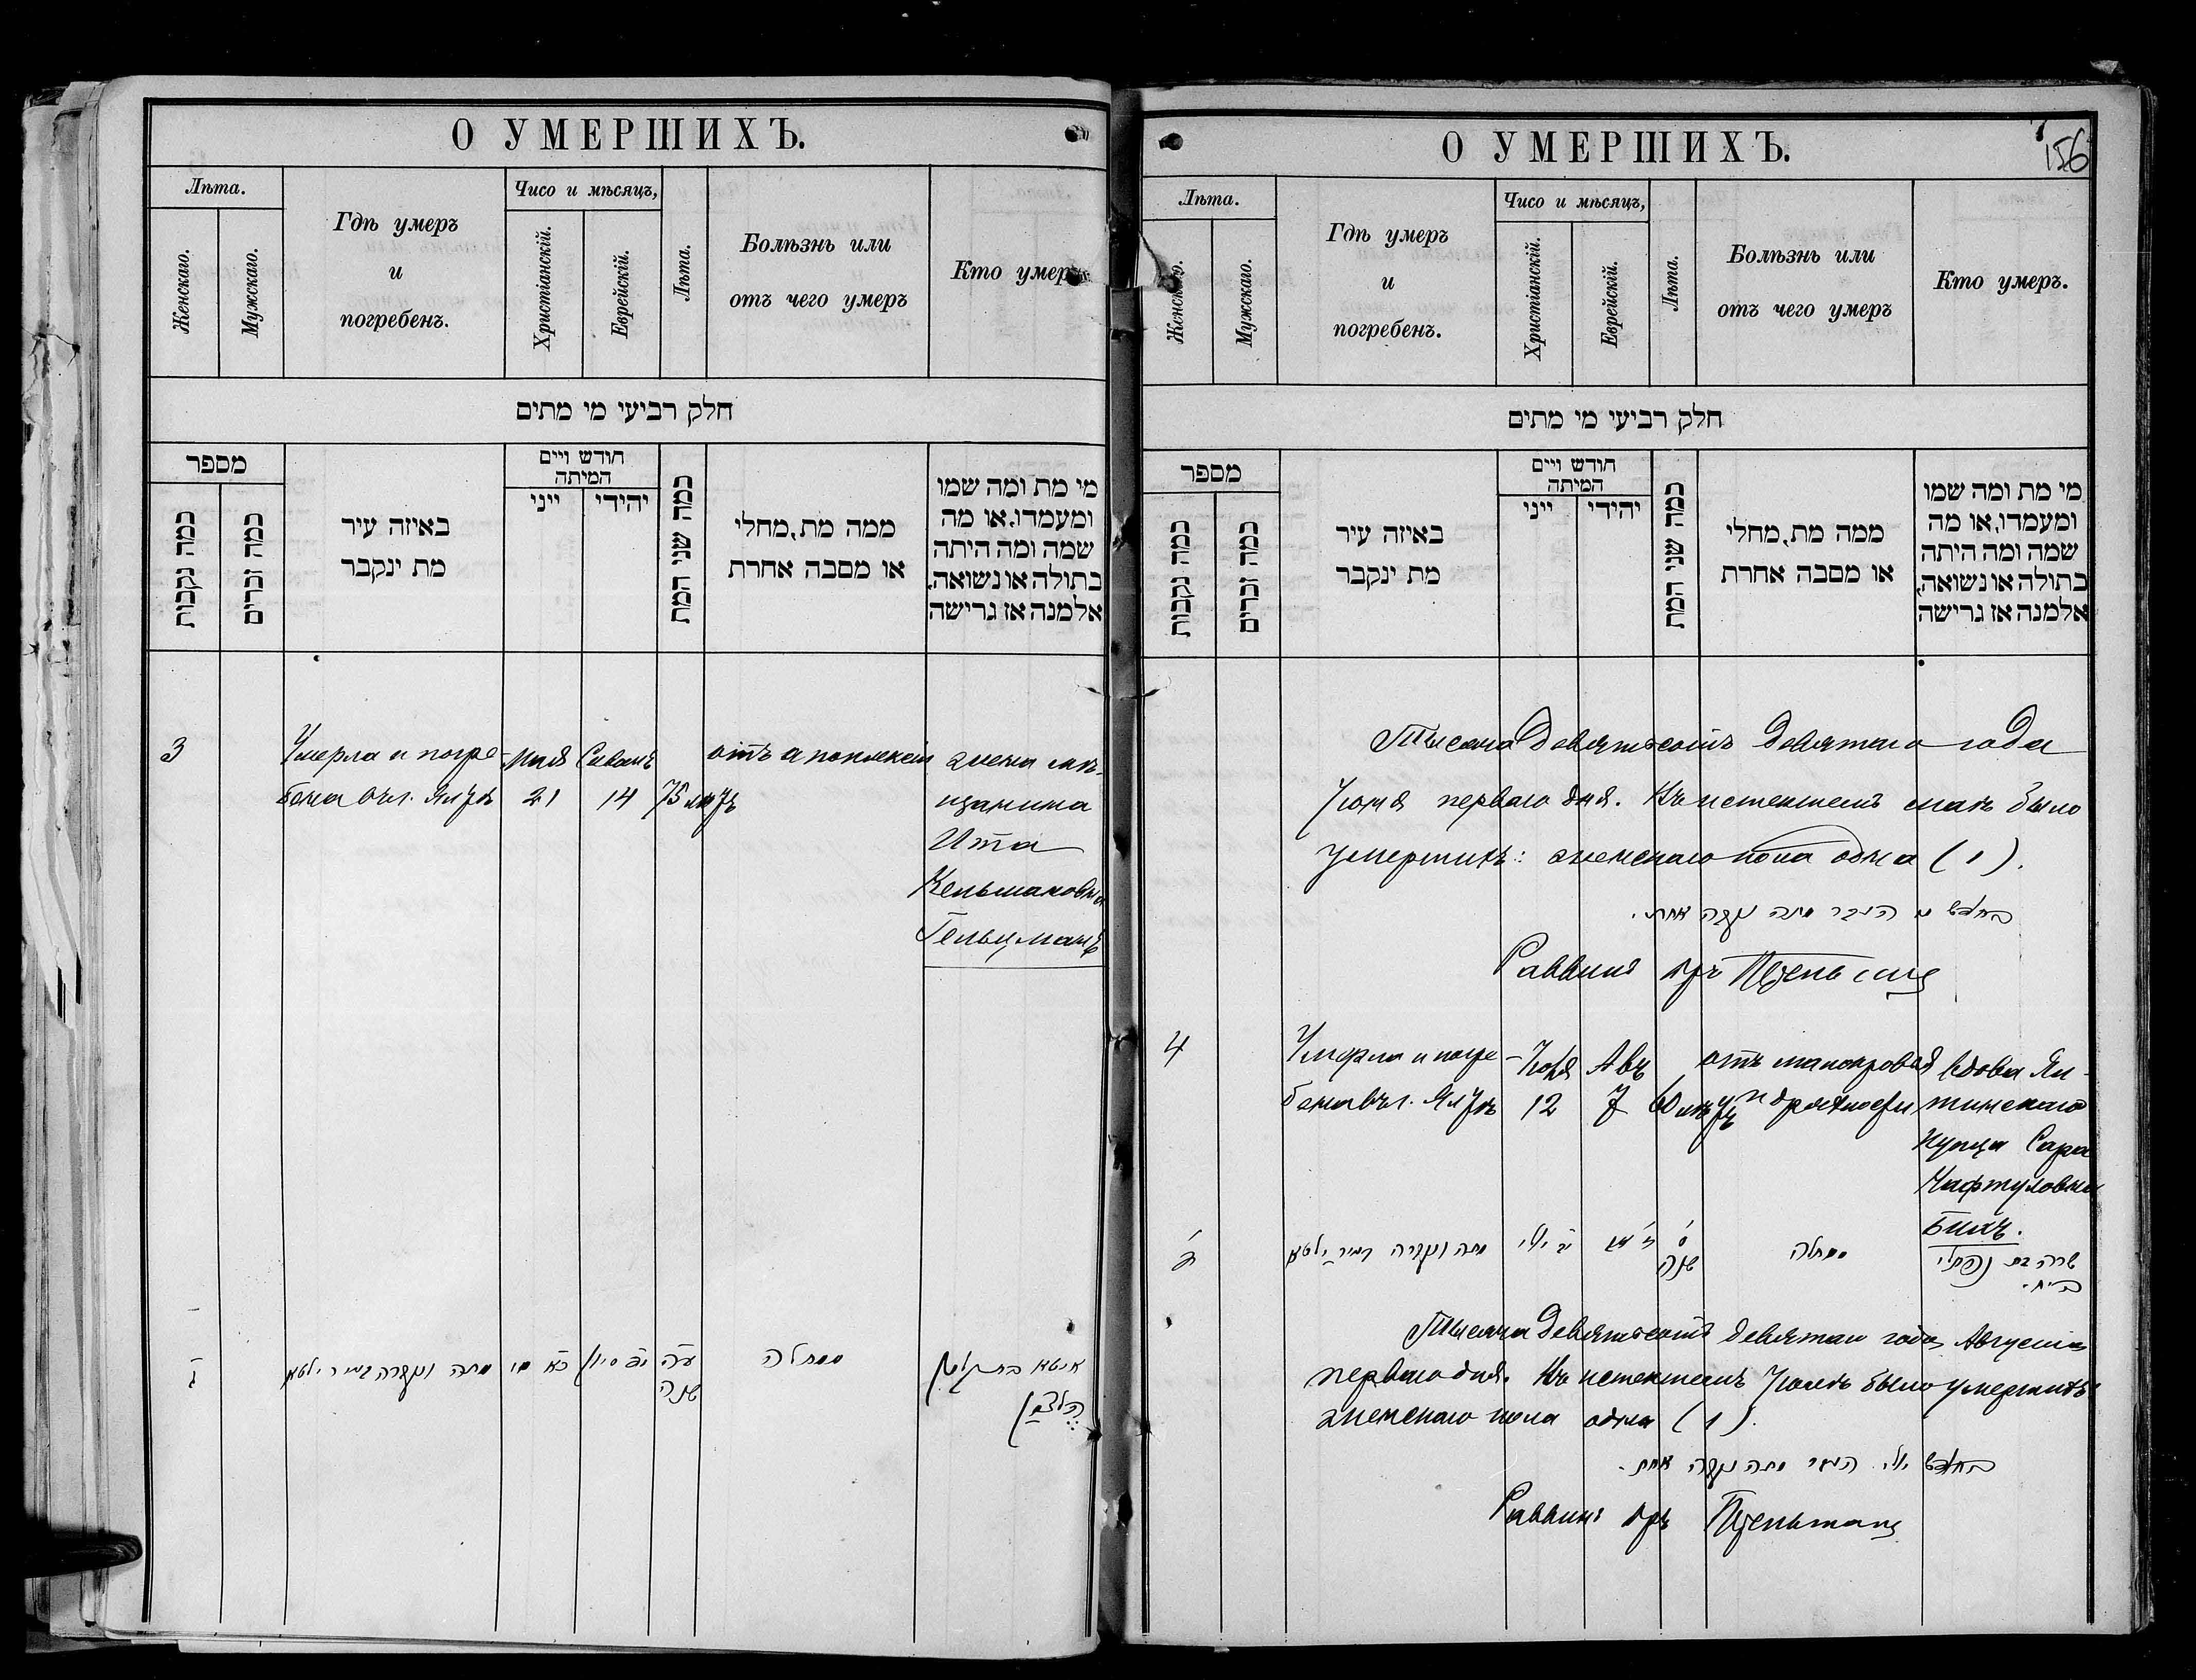 О УМЕРШИХЪ.
Лѣта.
Женскаго.
Мужскаго.
Гдѣ умеръ
и
погребенъ.
Чисо и мѣсяцъ,
Христіанскій.
Еврейскій.
Лѣта.
Болѣзнь или
отъ чего умеръ
Кто умеръ
חלק רביעי מי מתים
מספר
כמה נקבות
כמה זכרים
באיזה עיר
מת ינקבר
חודש ויים
המיתה
ייני
יהידי
כמה שני המת
ממה מת, מחלי
או מסבה אחרת
מי מת ומה שמו
ומעמדו, או מה
שמה ומה היתה
בתולה או נשואה,
אלמנה אז גרישה
3
Умерла и погре-
бена въ г. Ялтѣ
Мая
21
Сиванъ
14
75 лѣтъ
отъ апоплексіи
жена мѣ-
щанина
Ита
Кельмановна
Гельцманъ
מתה ונקברה בעיר ילטא
כ״א מי
סיון
ע״ה
שנה
ממחלה
איטא בת קלמן
העלצמאן
О УМЕРШИХЪ.
7
156
Лѣта.
Женскаго.
Мужскаго.
Гдѣ умеръ
и
погребенъ.
Чисо и мѣсяцъ,
Христіанскій.
Еврейскій.
Лѣта.
Болѣзнь или
отъ чего умеръ
Кто умеръ.
חלק רביעי מי מתים
מספר
כמה נקבות
כמה זכרים
באיזה עיר
מת ינקבר
חודש ויים
המיתה
ייני
יהידי
כמה שני המת
ממה מת, מחלי
או מסבה אחרת
מי מת ומה שמו
ומעמדו, או מה
שמה ומה היתה
בתולה או נשואה,
אלמנה אז גרישה
Тысяча девятьсотъ девятаго года
Іюня перваго дня. Въ истекшемъ маѣ было
умершихъ: женскаго пола одна (1).
בחדש מי העבר מתה נקבה אחת.
Раввинъ
4
Умерла и погре-
бена въ г. Ялтѣ
Іюля
12
Авъ
7
60 лѣтъ
отъ малокровія
и дряхлости
вдова Ял-
тинскаго
купца Сара
Нафтуловна
Бихъ.
ד
מתה ונקברה בעיר ילטא
יב יולי
ז אב
ס
שנה
ממחלה
שרה בת נפתלי
ביח.
Тысяча девятьсотъ девятаго года Августа
перваго дня. Въ истекшемъ Іюлѣ было умершихъ
женскаго пола одна (1).
בחדש יולי העבר מתה נקבה אחת.
Раввинъ